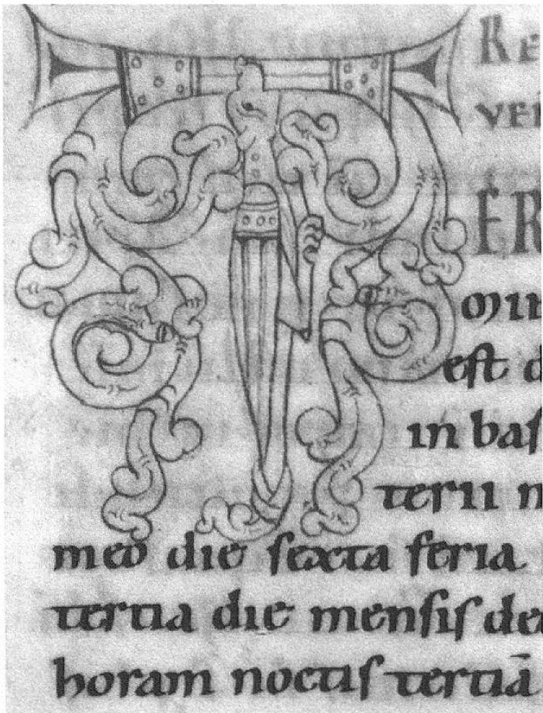 T
RE
VER
ER
MIN
est d
in bas
terii m
meo die sexta feria
tertia die mensis de
horam noctis tertiā